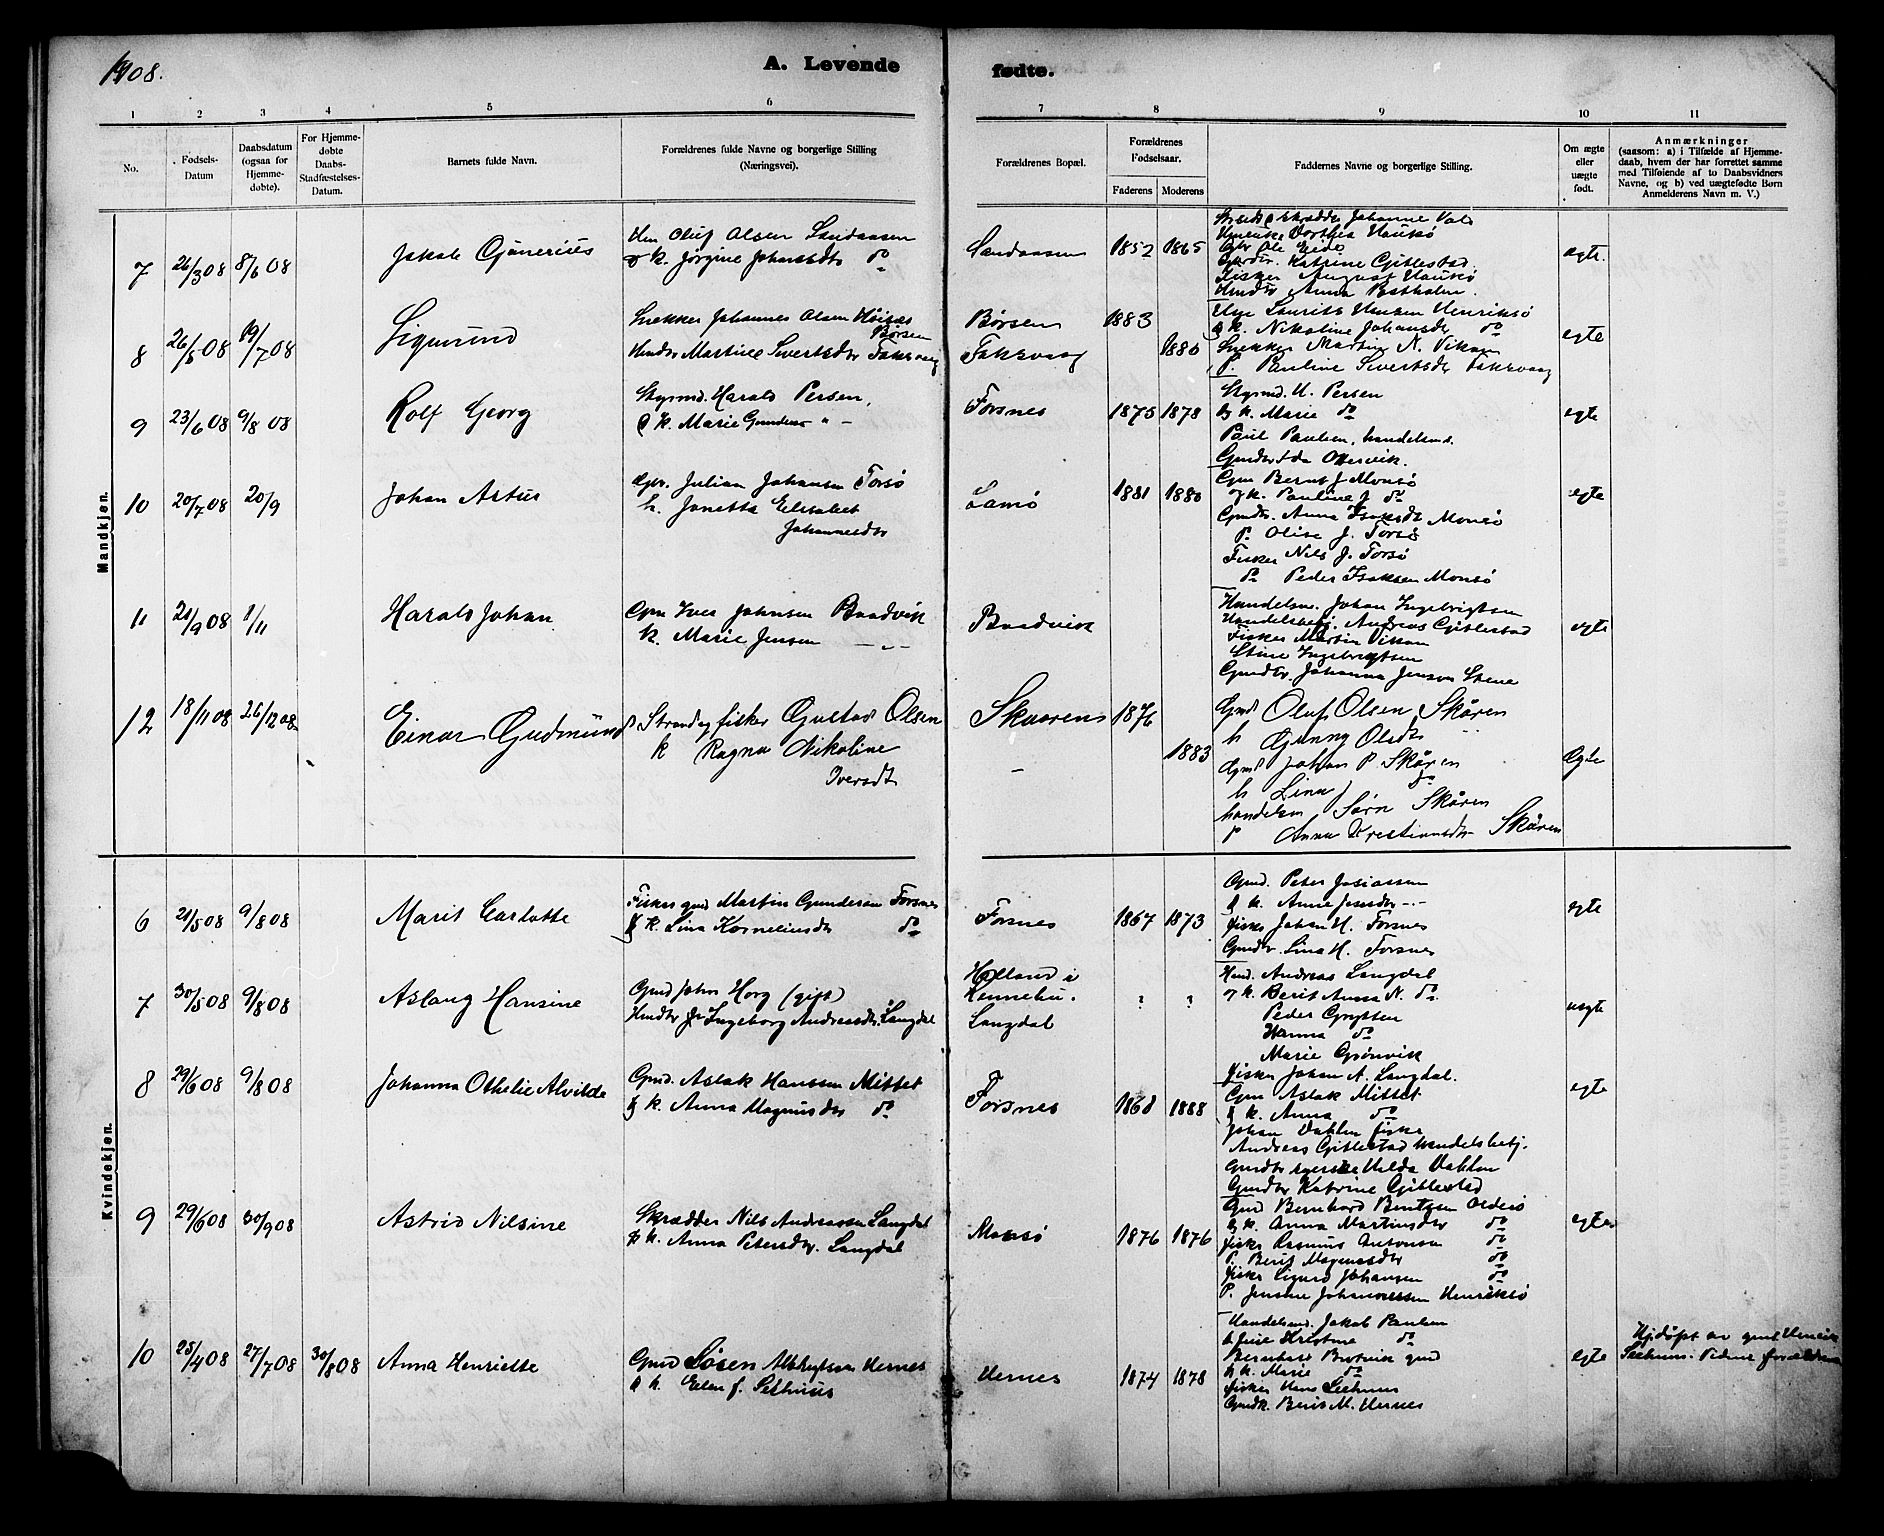 1908.
A. Levende fødte.
1 2 3 4 5 6 7 8 9 10 11
No.
Fødsels-
Datum
Daabsdatum
(ogsaa for
Hjemme-
døbte).
For Hjemme-
døbte
Daabs-
Stadfæstelses-
Datum.
Barnets fulde Navn.
Forældrenes fulde Navne og borgerlige Stilling
(Næringsvei).
Forældrenes Bopæl.
Forældrenes
Fødselsaar.
Faderens Moderens
Faddernes Navne og borgerlige Stilling.
Om ægte
eller
uægte
født.
Anmærkninger
(saasom: a) i Tilfælde af Hjemme-
daab, hvem der har forrettet samme
med Tilføiende af to Daabsvidners
Navne, og b) ved uægtefødte Børn
Anmelderens Navn m. V.)
Mandkjøn.
7 26/3 08 8/6 08 Jakob
Oluf Olsen Sandaasen
k. Jørgine do
Sandaasen 1852 1865
Johanne
Dorthea Hauksø
Ole Eide
Katrine Gjillestad.
Fisker August Hauksø
Anna
egte.
8 26/5 08 19/7 08 Sigmund
Snekker Johannes Olsen
Børsen
Martine Sivertsdtr Faksvaag
Børsen 1883
Faksvaag 1880
Laurits Hansen Henriksø
& k. Nikoline Johansdtr do
Snekker Martin N. Vikan
P. Pauline Sivertsdtr Faksvaag
egte
9 23/6 08 9/8 08 Rolf Georg
Styrmd. Harald Persen,
& k. Marie Gunders " -
Forsnes 1875 1878
Styrmd. H. Persen
og k. Marie do
Paul Paulsen, handelsmd.
Gmdtr Ida
egte
10 20/7 08 20/9 Johan Artur
Julian Johansen Torsø
k. Janetta Elisabet
Johannesdtr
Lamø 1881 1880
Gm Bernt J Monsø
og k. Pauline J do
Gmdtr. Anna Isaksdtr Monsø
P. Olise J. Torsø
Fisker Nils J. Torsø
do Peder Isaksen Monsø
egte
11 21/9 08 1/11 Harald Johan
Gm Iver Johnsen Baadvik
k. Marie Jensen — „ -
Baadvik
Handelsm. Johan Ingebrigtsen
Handelsbetj. Andreas Gjillestad
Fisker Martin Vikan
Stine Ingebrigtsen
Gmdtr. Johanna Jensen Stene
egte
12 18/11 08 26/12 08 Einar Gudmund
Strands. fisker Gustav Olsen
k Ragna Nikoline
Iversdt
Skaaren 1876
- 1883
Gmd Oluf Olsen Skåren
k Gunny Olsdt
Gmd Johan P. Skåren
k Lina J do
handelsm Sørn Skåren
P Anna Kristiansdtr Skåren
Ægte
Kvindekjøn.
6 21/5 08 9/8 08 Marit Carlotte
Fisker gmd Martin Gundersen Forsnes
& k. Lina Korneliusdtr do
Forsnes 1867 1873
Gmd. Peter Josiassen
& k. Anne
fisker Johan H. Forsnes
Gmdtr. Lina H. Forsnes
egte
7 30/5 08 9/8 08 Aslaug Hansine
Gmd John Horg (gift)
Hmdtr Ingeborg Andreasdtr, Langdal
Holland i
Hennebu.
Langdal
? ?
Hmd. Andreas Langdal
& k. Berit Anna N. do
Peder Gryttsen
Hanna do
Marie Grønvik
fisker Johan A. Langdal.
uegte
8 29/6 08 9/8 08 Johanna Othelie Alvilde
Gmd. Aslak Hanssen Mittet
& k. Anna Magnusdtr do
Forsnes 1868 1888
Gm Aslak Mittet
& k. Anna do
Johan Dahlen fisker
Andreas Gjillestad Handelsbetj.
Gmdtr Hilda Dahlen
Gmdtr Katrine Gjillestad
egte
9 29/6 08 30/9 08 Astrid Nilsine
Skrædder Nils Andreassen Langdal
& k. Anna Petersdtr. Langdal
Monsø 1876 1876
Gmd Bernhard Bentzen Oldeø
& k. Anna Martinsdtr do
fisker Rasmus Antonsen do
P. Berit Magnusdtr do
fisker Sigurd Johansen do
P. Jensine Johannessen Henriksø
egte
10 25/4 08 27/7 08 30/8 08 Anna Henriette
Gmd Søren Albrigtsen Hernes
& k. Elen J. Sethnes
Hernes 1874 1878
Handelsmd. Jakob Paulsen
Kristine do
Bernhard gmd
& k. Marie do
fisker Hans
Gmdk. Berit M. Hernes
egte
Hjdøpt av gmd Henrik
Vidne forældrene